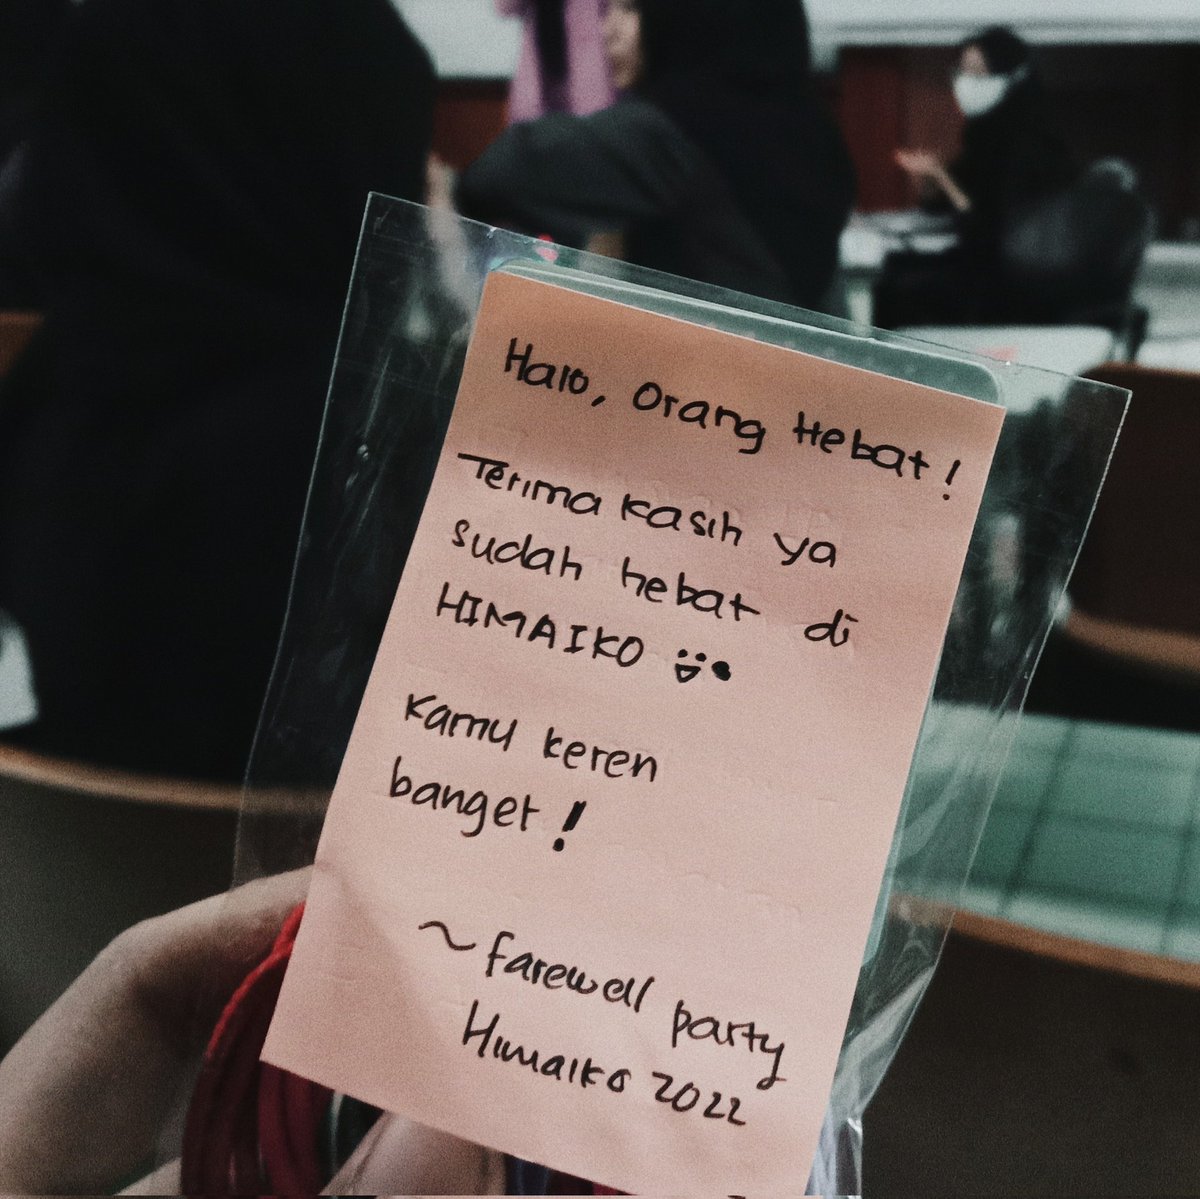 Halo, Orang Hebat!
Terima kasih ya
sudah hebat di
HIMAIKO
Kamu keren
banget!
~ farewell party
Himaiko 2022